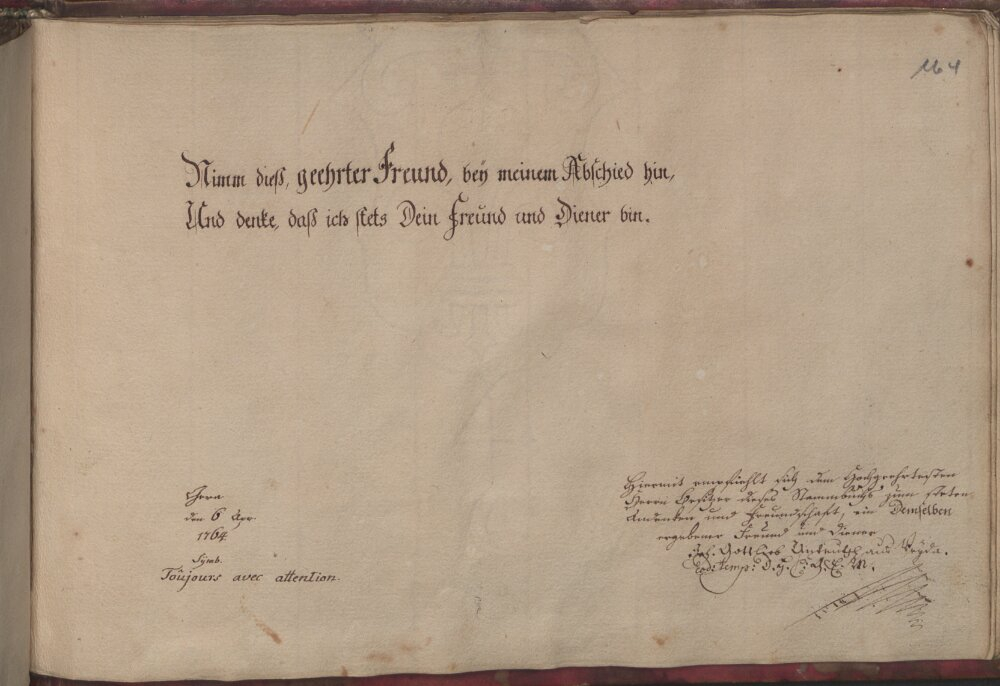 164
Nimm dieß, geehrter Freund, beÿ meinem Abschied hin,
Und denke, daß ich stets Dein Freund und Diener bin.
Jena
den 6 Apr.
1764.
Symb.
Toujours avec attention.
Hiermit empfiehlt sich dem Hochgeehrtesten
Herrn Besitzer dieses Stammbuchs zum steten
Andenken und Freundschaft, ein Demselben
ergebener Freund und Diener
Joh. Gottlieb aus Weÿda.